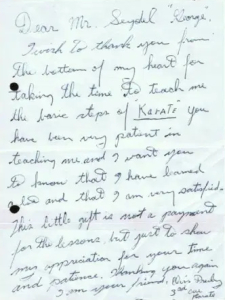 Dear Mr. Seydel "George"
I wish to thank you from
the bottom of my heart for
taking the time to teach me
the basic steps of KARATE you
have been very patient in
teaching me and I want you
to know that I have learned
a lot and that I am very satisfied.
This little gift is not a payment
for the lessons, but just to show
my appreciation for your time
and patience. Thanking you again
I am your friend,